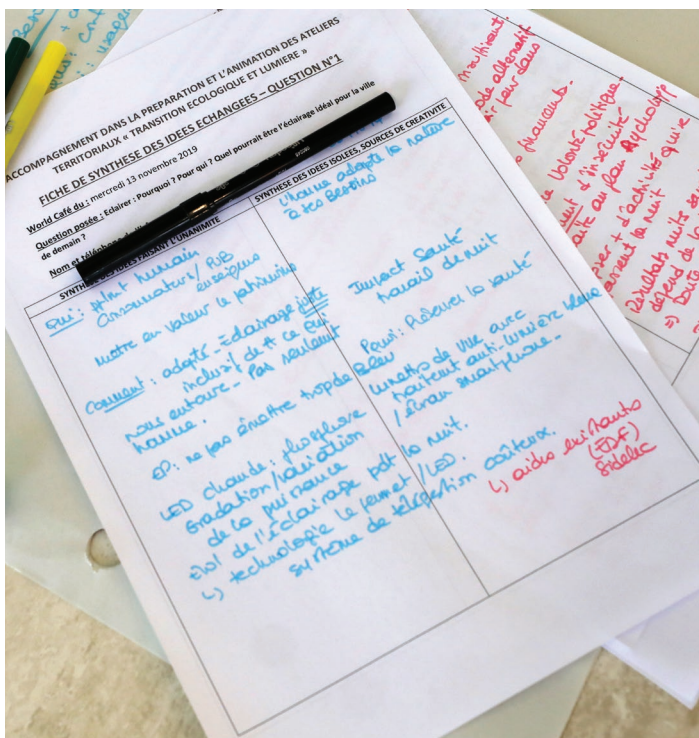 ACCOMPAGNEMENT DANS LA PREPARATION ET L'ANIMATION DES ATELIERS
TERRITORIAUX « TRANSITION ECOLOGIQUE ET LUMIERE »
FICHE DE SYNTHESE DES IDEES ECHANGEES – QUESTION N°1
World Café du : mercredi 13 novembre 2019
Question posée : Eclairer : Pourquoi ? Pour qui ? Quel pourrait être l'éclairage idéal pour la ville
de demain ?
Nom et téléphone
SYNTHESE DES IDEES FAISANT L'UNANIMITE
Qui : humain
Consommateurs / PUB
enseignes
mettre en valeur le patrimoine
Comment : adapté - Eclairage juste
inclusif de tt ce qui
nous entoure - Pas seulement
homme.
EP : ne pas émettre trop de Bleu
LED chaude : phosphore
Gradation / variation
de la puissance
de l'éclairage pdt la nuit.
↳ technologie le permet / LED.
système de télégestion coûteux.
SYNTHESE DES IDEES ISOLEES, SOURCES DE CREATIVITE
L'homme adapte la nature
à ses Besoins
Impact Santé
travail de nuit
Pour : Préserver la santé
lunettes de vue avec
traitement anti-lumière bleue
/ écran smartphone -
↳ aides existantes
(EDF)
Sidelec
alternatif
financements.
Volonté politique.
d'insécurité
au plan Psycholog
d'activité qui se
la nuit
Résultats nuits sans
dépend de la
⇒